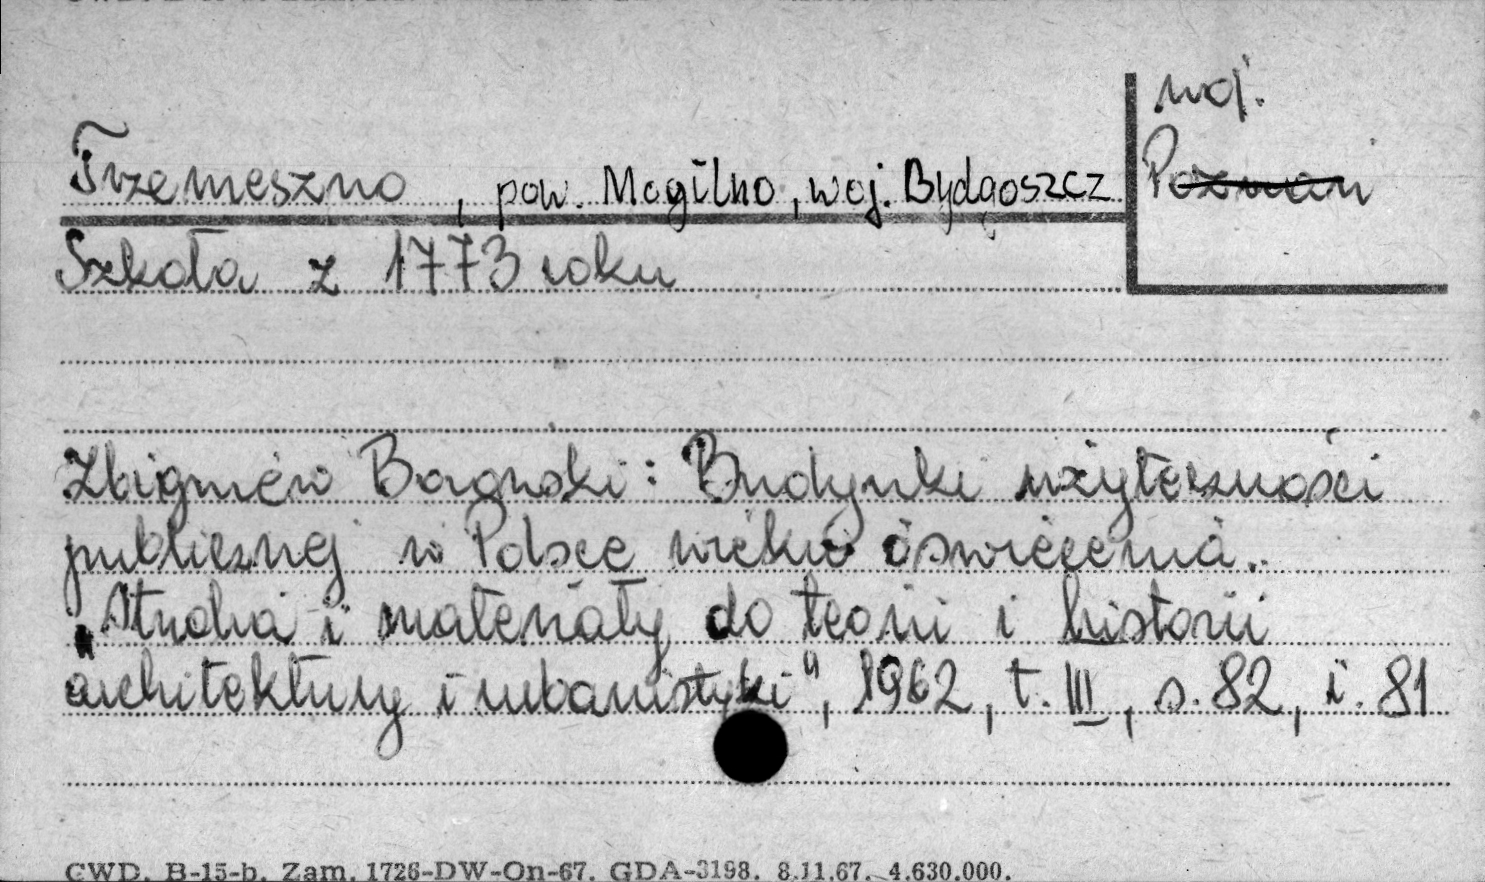 Trzemeszno, pow. Mogilno, woj. Bydgoszcz
woj.
Poznań
Szkoła z 1773 roku
Zbigniew Bagński: Budynki użyteczności
publicznej w Polsce wieku oświecenia.
„Studia i materiały do teorii i historii
architektury i urbanistyki", 1962, t. III, s. 82, i. 81
CWD. B-15-b. Zam. 1726-DW-On-67. GDA-3198. 8.11.67. 4.630.000.